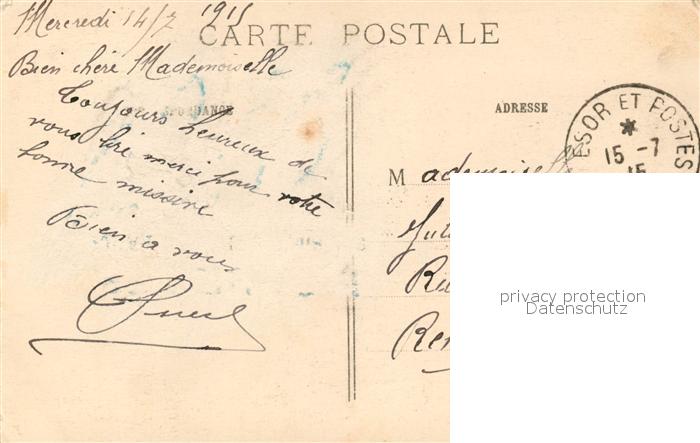 Mercredi 14/7 1915
CARTE POSTALE
Bien chéré Mademoiselle
Toujours heureux de
vous lire merci pour votre
bonne missive
Bien a vous
ADRESSE
ESOR ET POSTES
15 - 7
15
Mademoiselle
privacy protection
Datenschutz